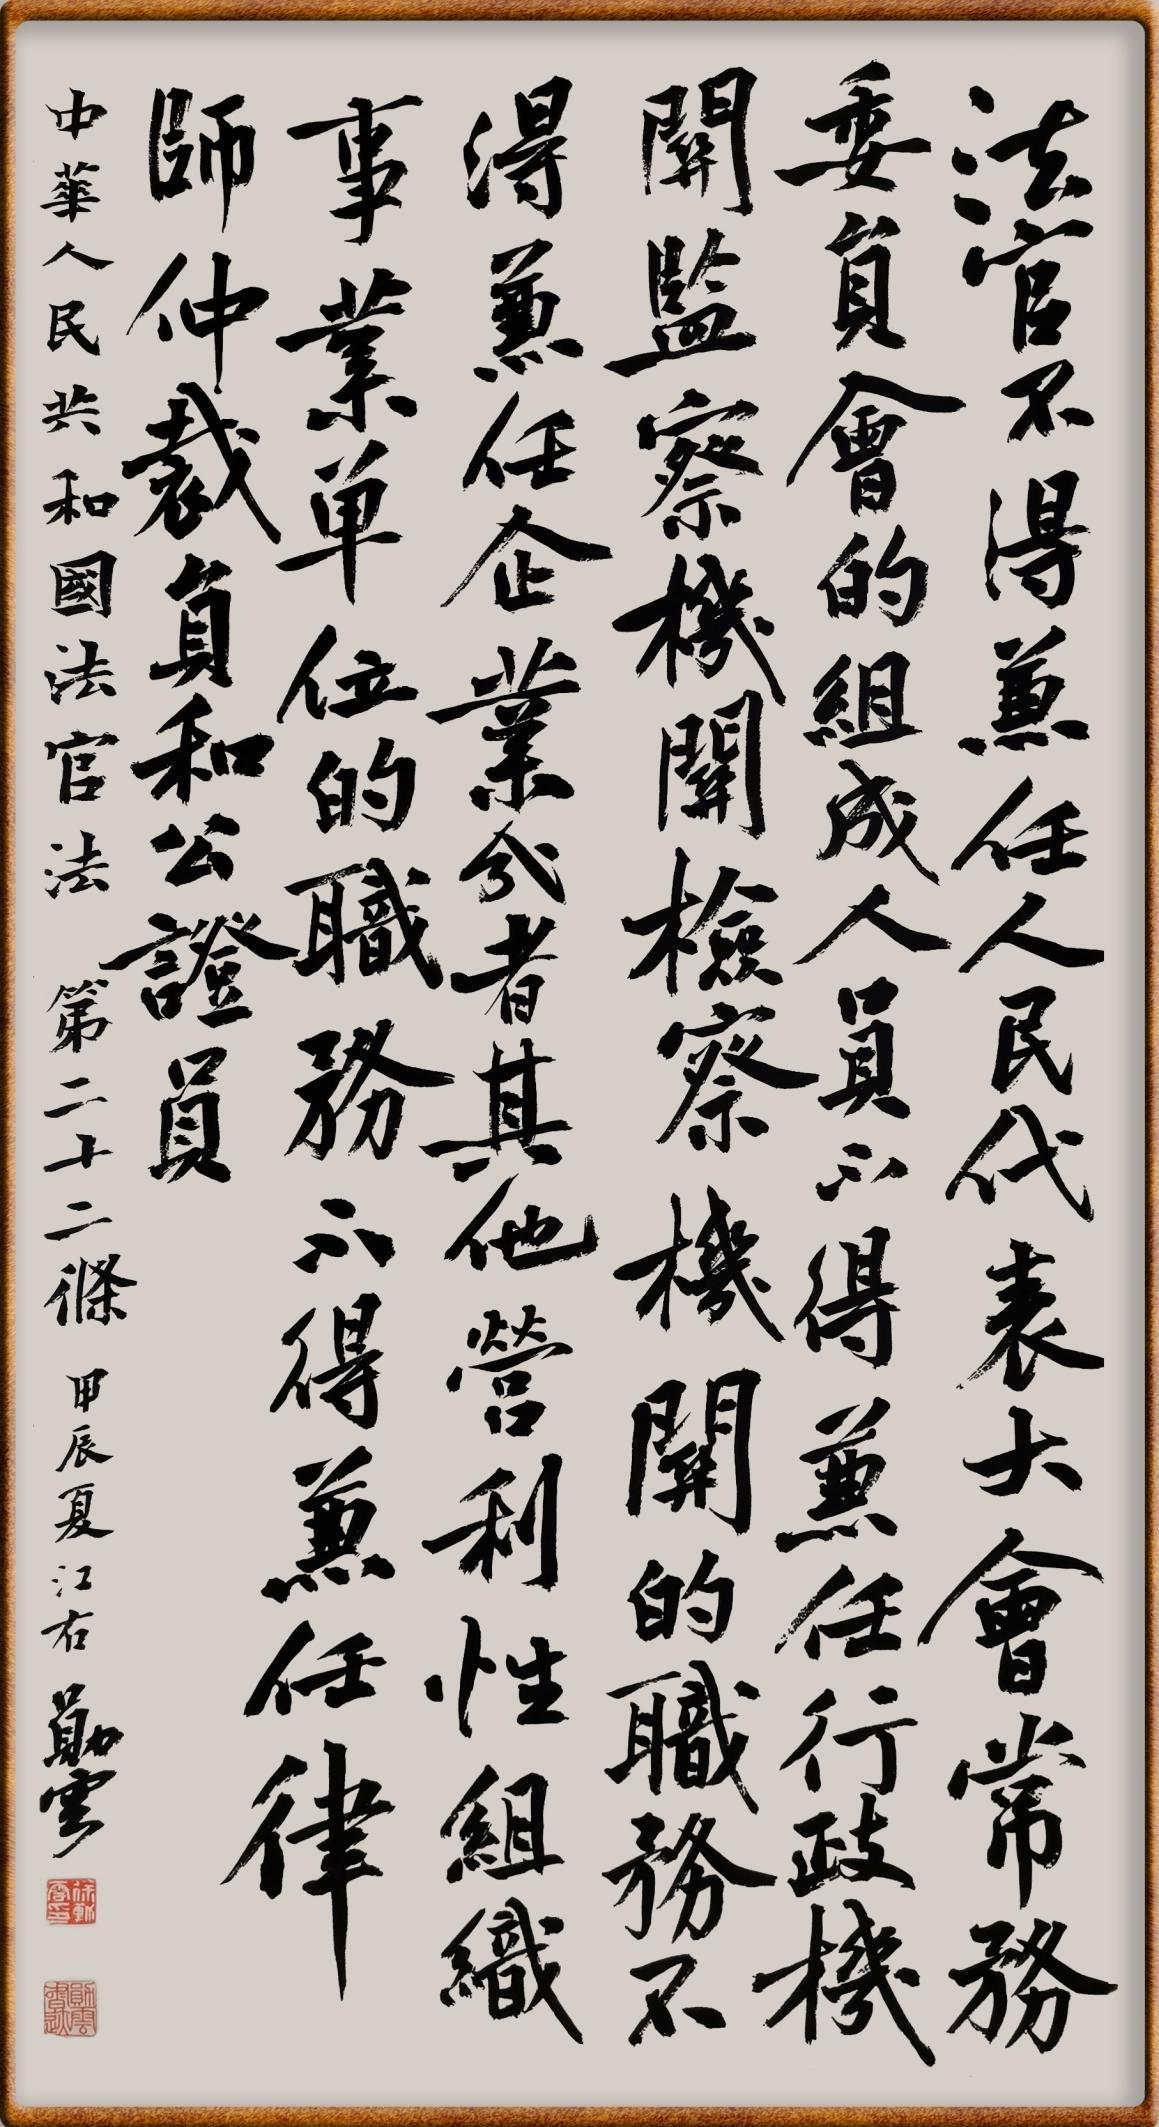 法官不得兼任人民代表大會常務
委員會的組成人員不得兼任行政機
關監察機關檢察機關的職務不
得兼任企業或者其他營利性組織
事業单位的職務不得兼任律
師仲裁員和公證員
中華人民共和國法官法 第二十二條 甲辰夏江右勛雲